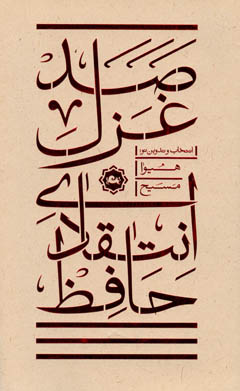 صد
غزل
انتخاب و تدوین
هیوا
مسیح
انتقادی
حافظ